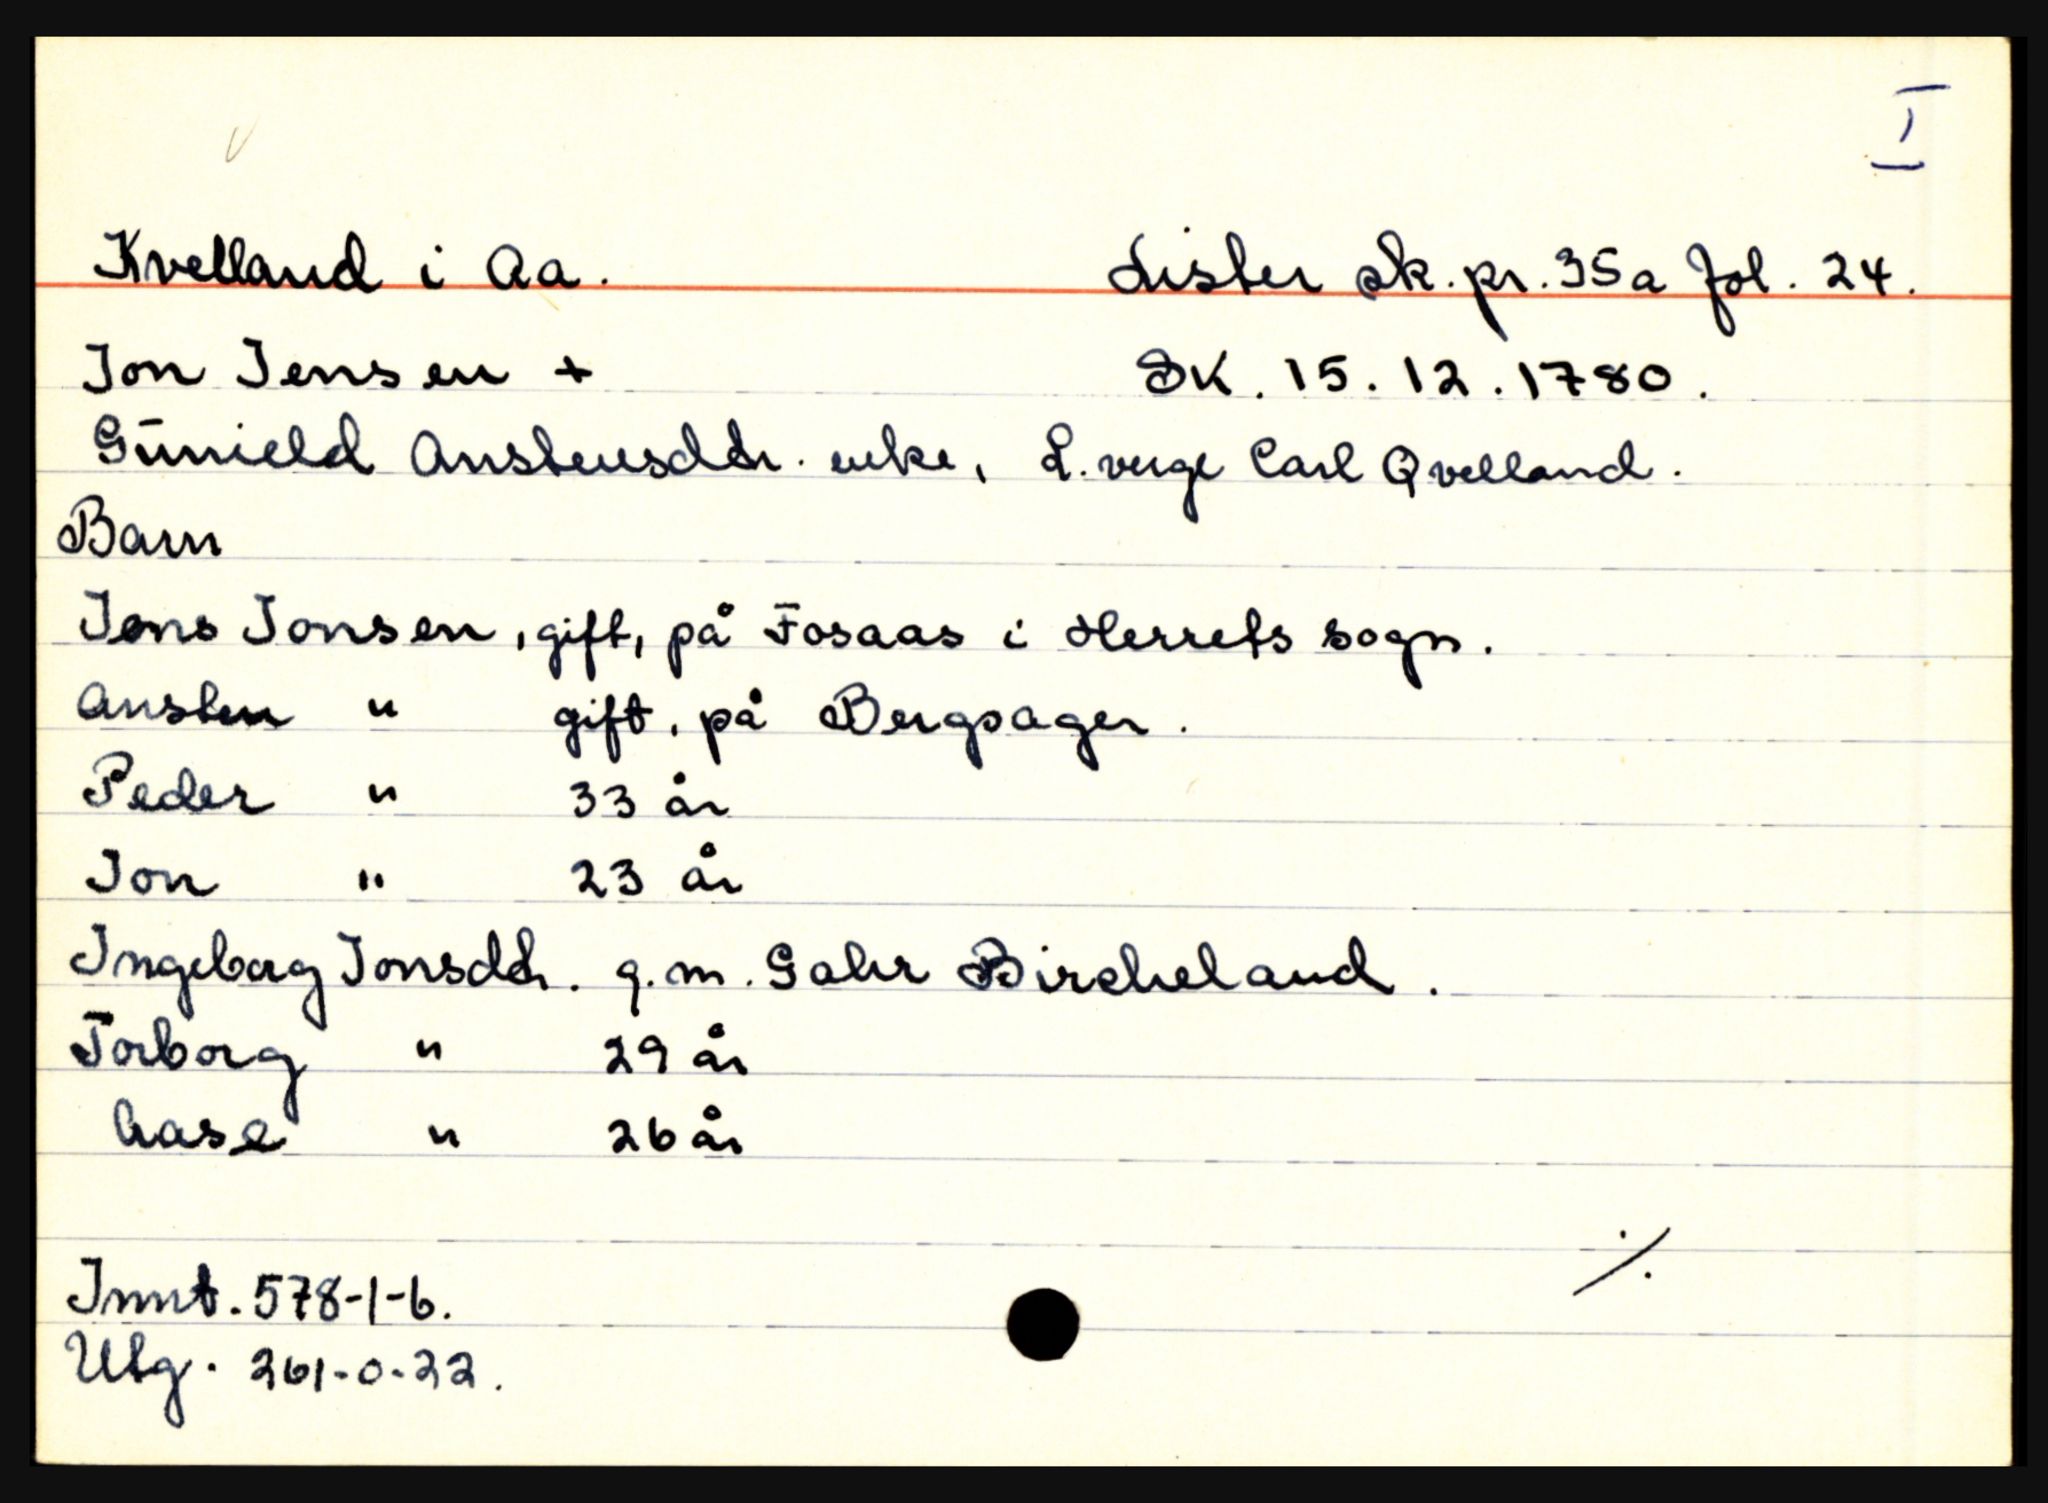 I
Kvelland i Aa. Lister sk. pr. 35a fol. 24.
Jon Jensen + SK. 15.12.1780.
Gūnield Anstensdtr. enke, L. verge Carl Qvelland.
Barn
Jens Jonsen, gift, på Fosaas i Herrets sogn.
Ansten " gift, på Bergsager.
Peder " 33 år
Jon " 23 år
Ingeborg Jonsdtr. g.m. Gahr Birkeland.
Torborg " 29 år
Aase " 26 år
./.
Innt. 578-1-6.
Utg. 261-0-22.